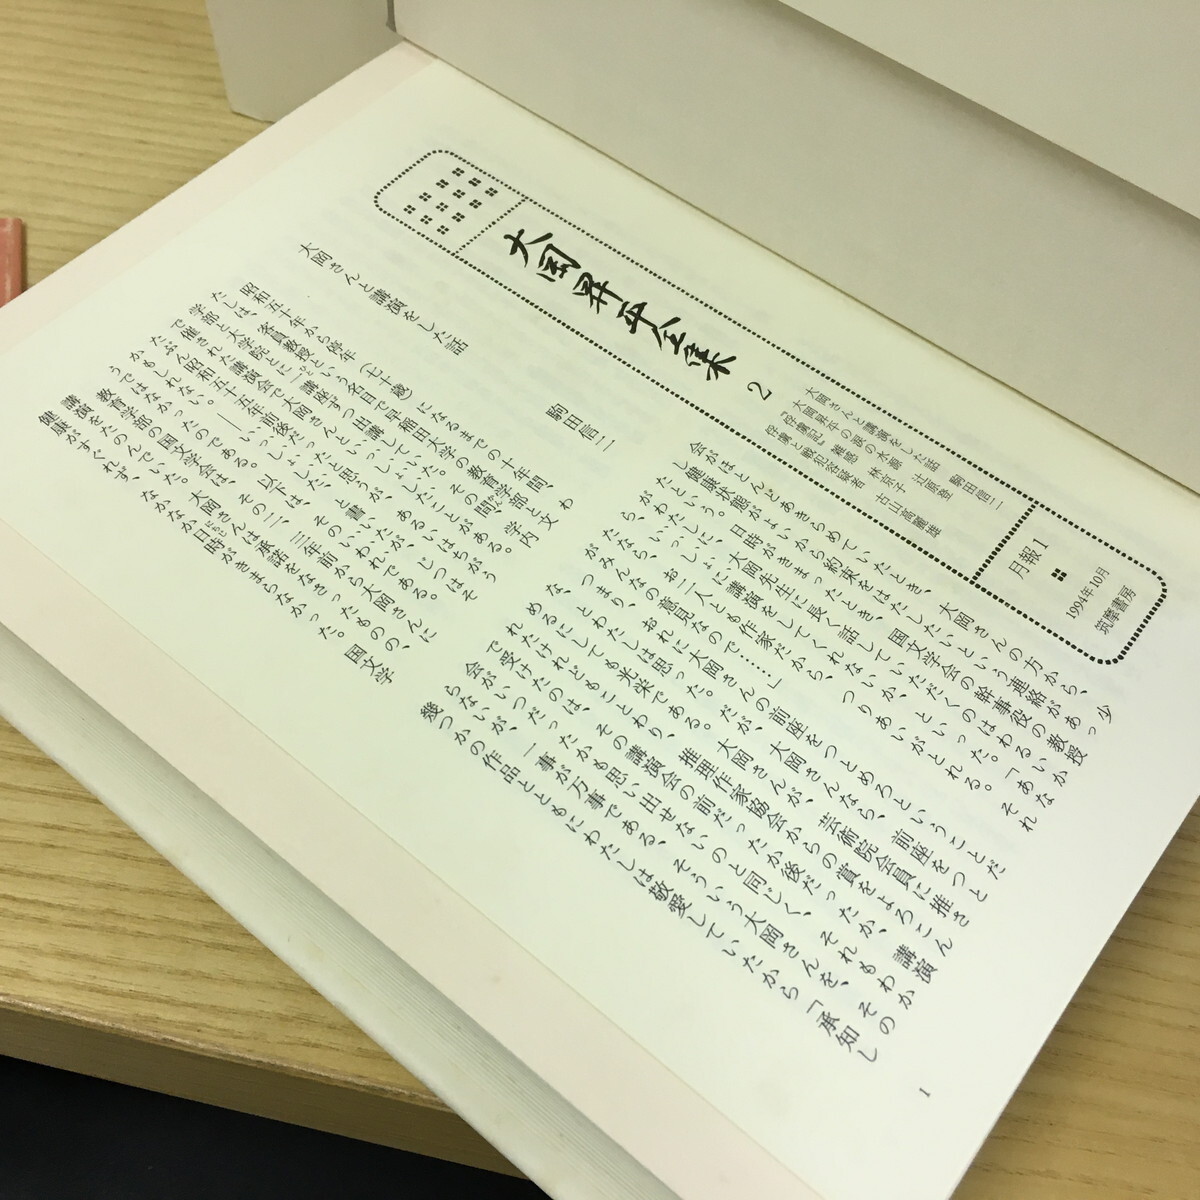 大岡昇平全集 2
大岡さんと講演をした話 駒田信二
大岡昇平の涙の水脈 辻原登
『俘虜記』雑感 林京子
俘虜と戦犯容疑者 古山高麗雄
月報1
1994年10月
筑摩書房
大岡さんと講演をした話
駒田信二
昭和五十年から停年(七十歳)になるまでの十年間、わ
たしは、客員教授という名目で早稲田大学の教育学部と文
学部と大学院とに一つずつ講座
で催された講演会で
たぶん昭和五十五年前後だったと思うが、あるいはちがう
かもしれない。——いっしょに、と書いたが、じつはそ
うではなかったのである。以下は
教育学部の国文学会は、その二、三年前から大岡さんに
講演をたのんでいた。大岡さんは承諾をなさったものの、
健康がすぐれず、なかなか日時がきまらなかった。国文学
会がほとんどあきらめていたとき、大岡さんの方から、少
し健康状態がよいから約束をはたしたいという連絡があっ
たという。日時がきまったとき、国文学会の幹事役の教授
が、わたしに、大岡先生に長く話していただくのはわるい
から、いっしょに講演をしてくれないか、といった。「あな
たなら、お二人とも作家だから、つりあいがとれる。それ
がみんなの意見なので……」
つまり、おれは大岡さんの前座をつとめろということだ
な、とわたしは思った。だが、大岡さんなら、前座をつと
めるにしても光栄である。大岡さんが、芸術院会員に推さ
れたけれどもことわり、推理作家協会からの賞をよろこん
で受けたのは、その講演会の前だったか後だったか、講演
会がいつだったかも思い出せないのと同じく、それもわか
らないが、一事が万事である、そういう大岡さんを、その
幾つかの作品とともにわたしは敬愛していたから「承知し
1